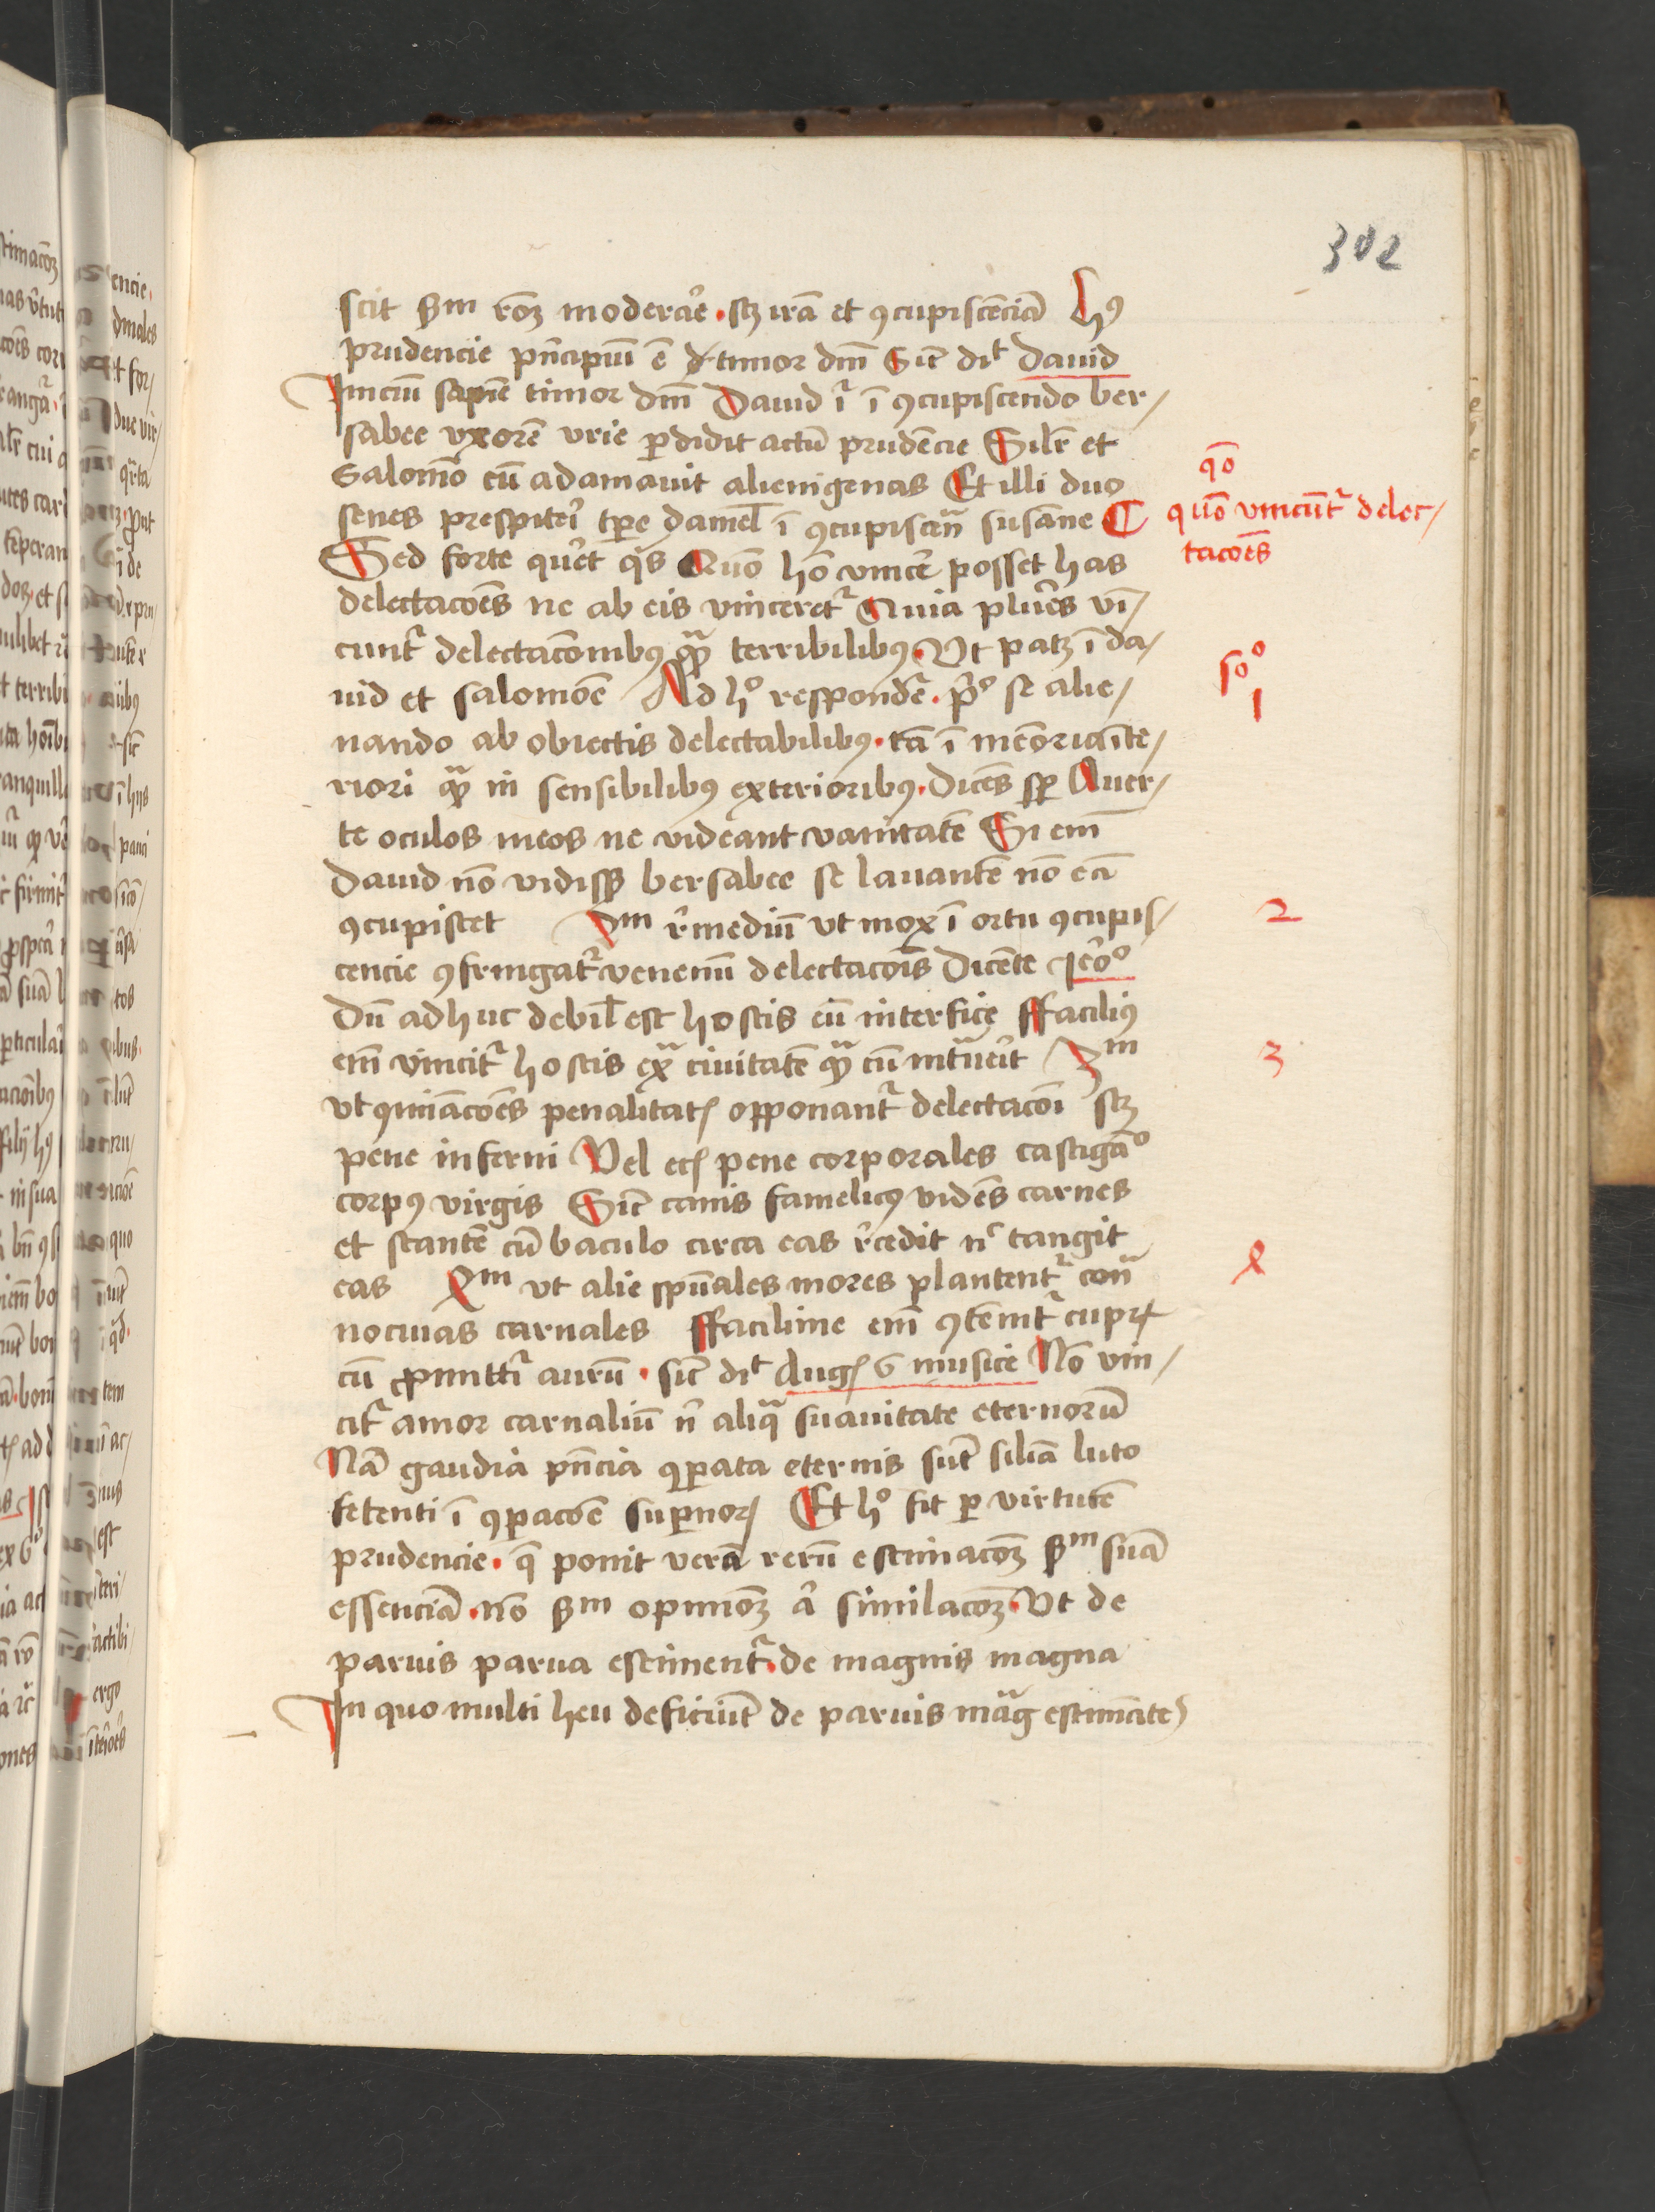 302
scit scdm rōꝫ moderar̄e . scꝫ irā et ꝯcupiscēciā Hꝰ
prudencie pn̄cipiū ē timor dnī Sic̄ dīt dauid
Iniciū sapiē timor dnī Dauid īr ī ꝯcupiscendo ber/
sabee vxorē vrie ꝑdidit actū prudēcie Silr̄ et
Salomō cū adamauit alienigenas Et illi duo
senes prespiteri tꝑe daniel̄ ī ꝯcupiscēn̄ susāne ¶
Sed forte quer̄et qͥs Quō hō vincer̄e posset has
delectacōēs ne ab eis vinceretᷣ Quia plur̄es vī/
cuntᷣ delectacōnibꝰ qᷓꝫ terribilibꝰ . Vt patꝫ ī da/
uid et salomōe Ad hͦ respondēr . pͥͦ se alie/
nando ab obiectis delectabilibꝰ . tā ī memoria īte/
riori qᷓꝫ in sensibilibꝰ exterioribꝰ . Dicēs sꝑ Auer/
te oculos meos ne videant vanitatē Si em̄
dauid nō vidissꝫ bersabee se lauantē nō eā
ꝯcupiscet 2m r̄mediū vt mox ī ortu ꝯcupis/
cencie ꝯfringatᷣ venenū delectacōīs Dicēte Iero̅ͦ
Dū adhuc debil̄ est hostis eū interfice ffaciliꝰ
em̄ vincitᷣ hostis exᷓ ciuitatē qᷓꝫ cū intᷓuerīt 3m
vt ꝯmīacōēs penalitatꝭ opponantᷣ delectacōī scꝫ
pene inferni Vel ecꝭ pene corporales castigāͦ
corpꝰ virgis Sic̄ canis famelicꝰ vidēs carnes
et stantē cū baculo circa eas r̄cedit nͨ tangit
eas 4m vt alie spūales mores plantentᷣ con̄ᷓ
nociuas carnales ffacilime em̄ ꝯtēnitᷣ cupꝝ
cū ꝓmittitᷣ aurū . sic̄ dīt Augꝭ 6 musice Nō vin/
citᷣ amor carnaliū nͥ aliqᷓ suauitate eternorū
Nā gaudia pn̄cia ꝯꝑata eternis sūt siliā luto
fetenti ī ꝯꝑacōē suꝑnoꝝ Et hͦ fit ꝑ virtutē
prudencie . q̄ ponit verā rerū estimacōꝫ scdm suā
essenciā . nō scdm opinionꝫ aͥ similacōꝫ . Vt de
paruis parua estimentᷣ . de magnis magna
In quo multi heu deficiūt de paruis māg estimātes
qō
quō vincunt̄ᷣ delec/
tacōēs
soͦ
1
2
3
4